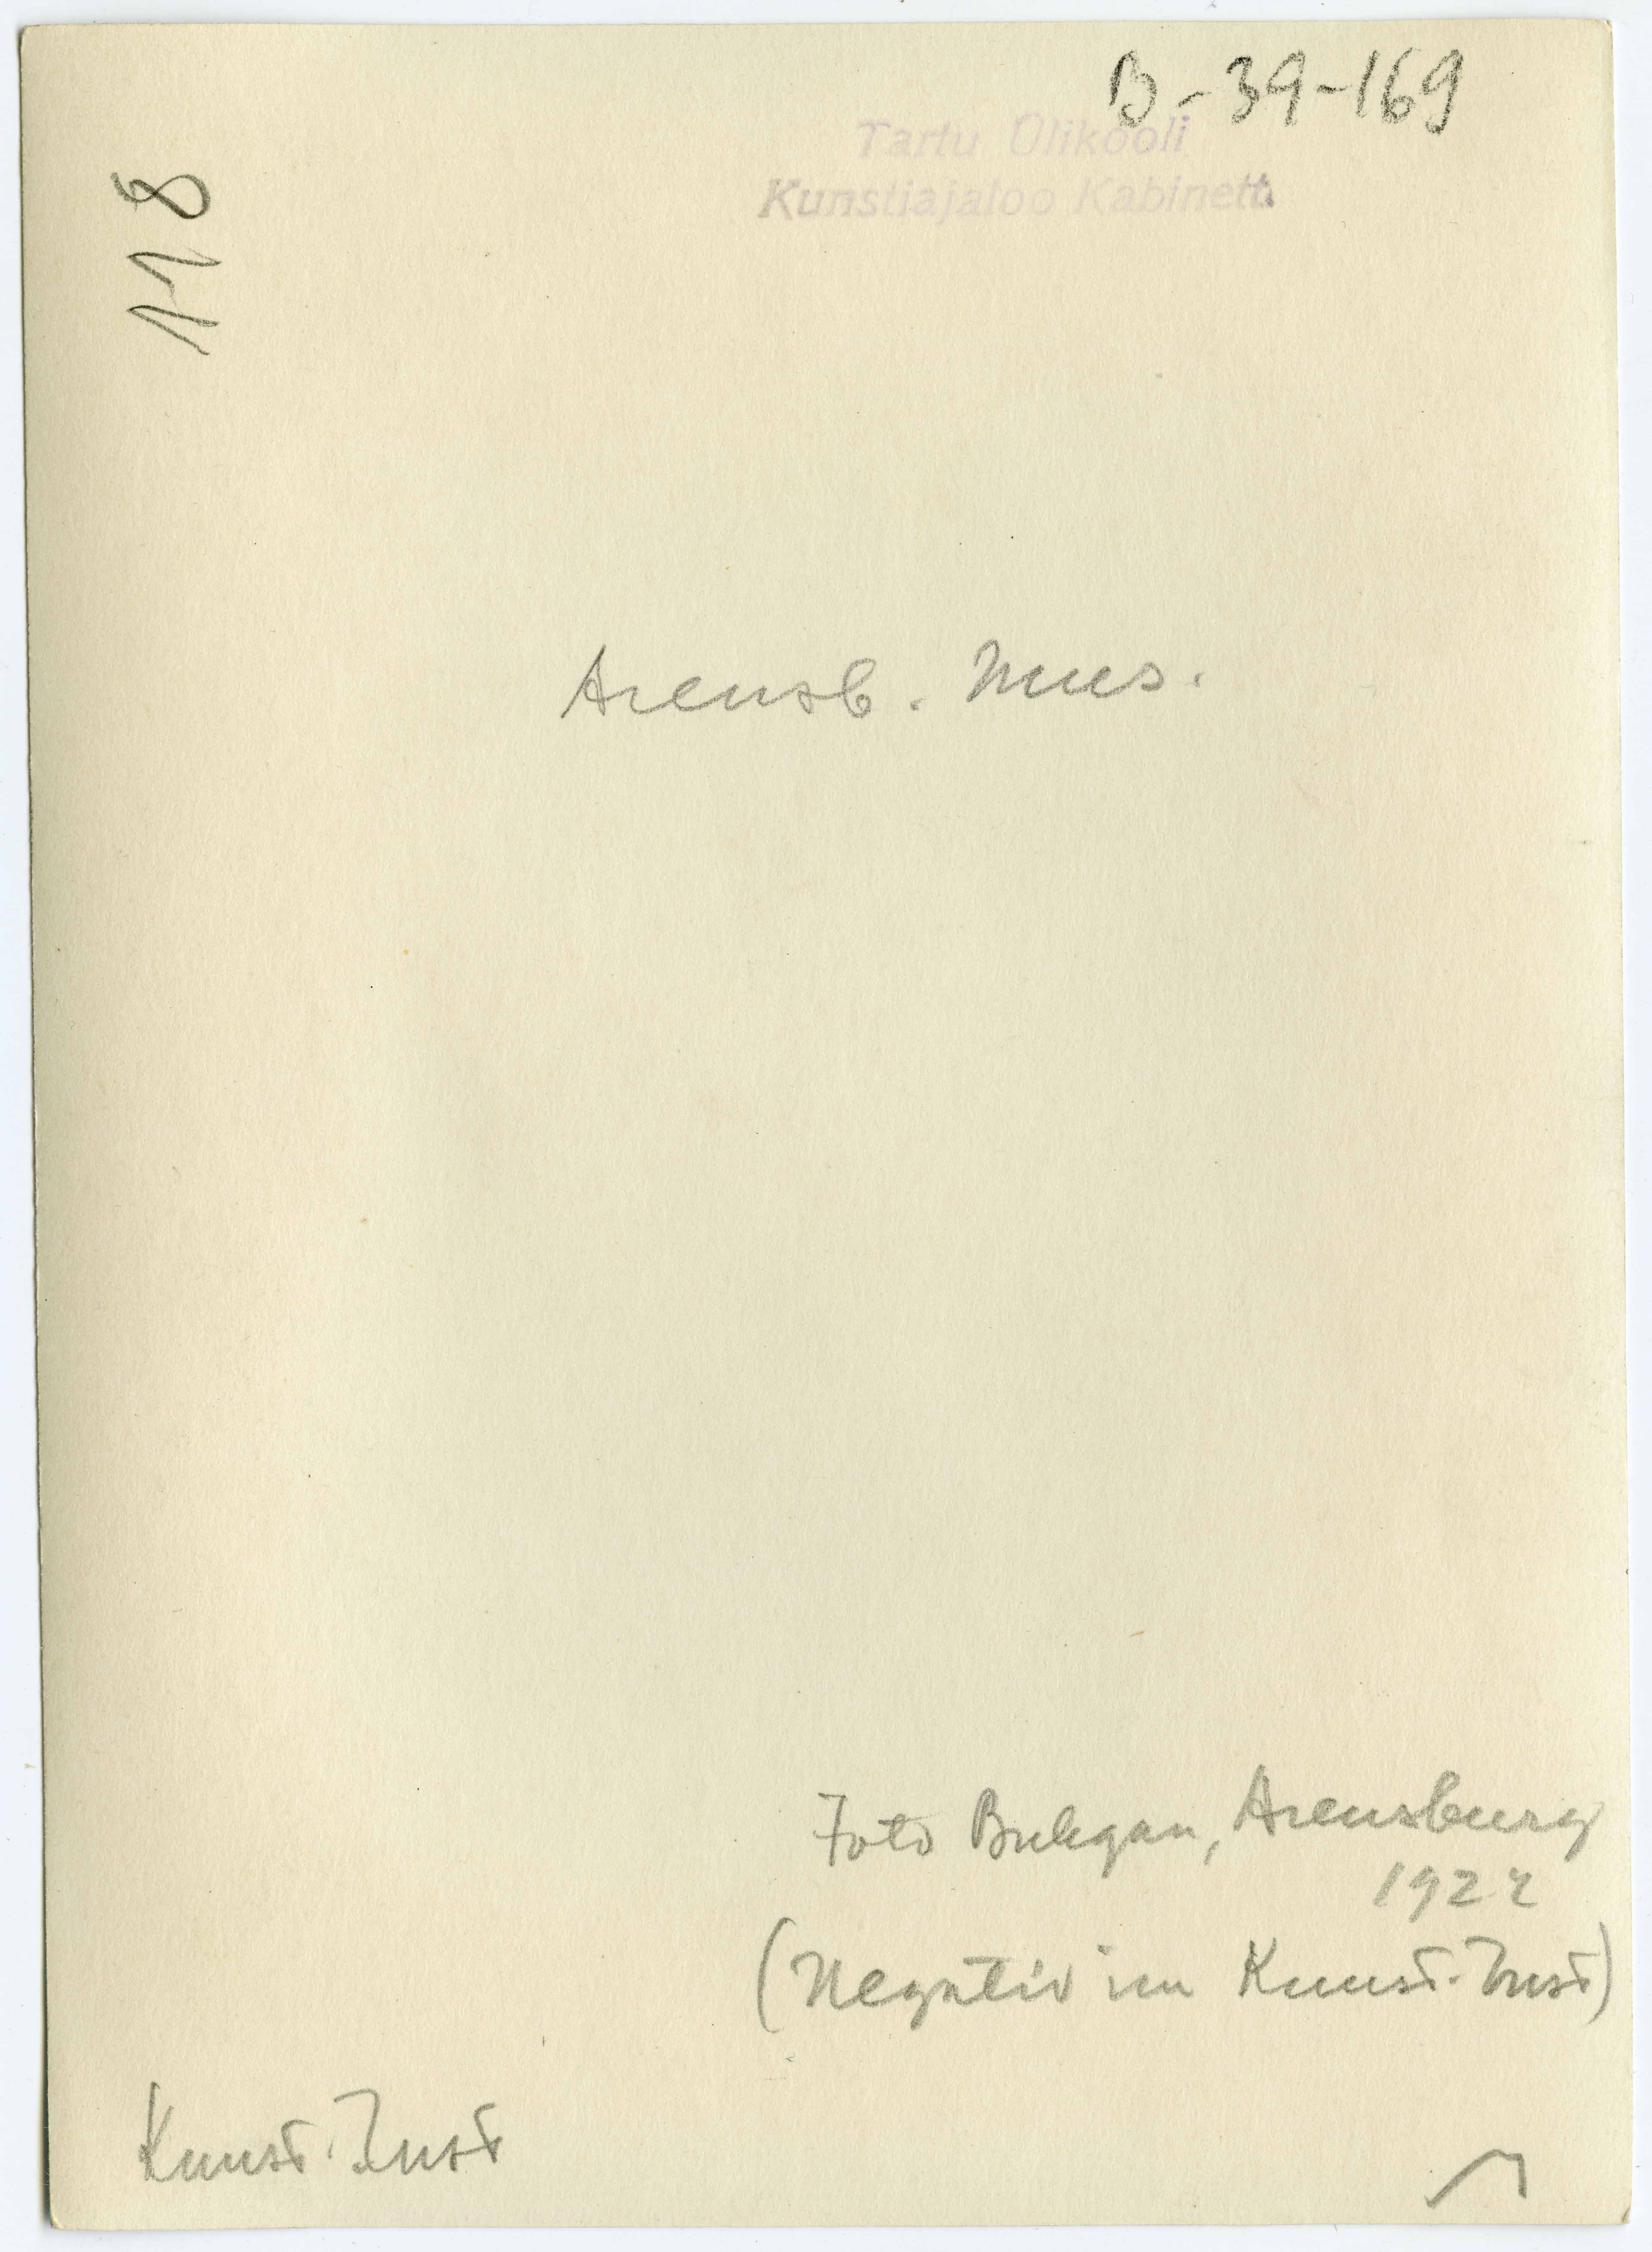 B-39-169
Tartu Ülikooli
Kunstiajaloo Kabinett
118
Arensb. Mus.
Foto Buhgan, Arensburg
1922
(Negativ im Kunst-Inst)
Kunst. Inst